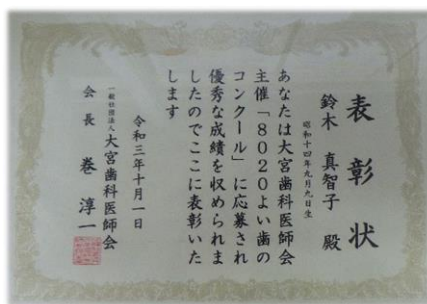 表彰状
鈴木 真智子 殿
昭和十四年九月九日生
あなたは大宮歯科医師会
主催「8020よい歯の
コンクール」に応募され
優秀な成績を収められま
したのでここに表彰いた
します
令和三年十月一日
一般社団法人大宮歯科医師会
会長 巻 淳一